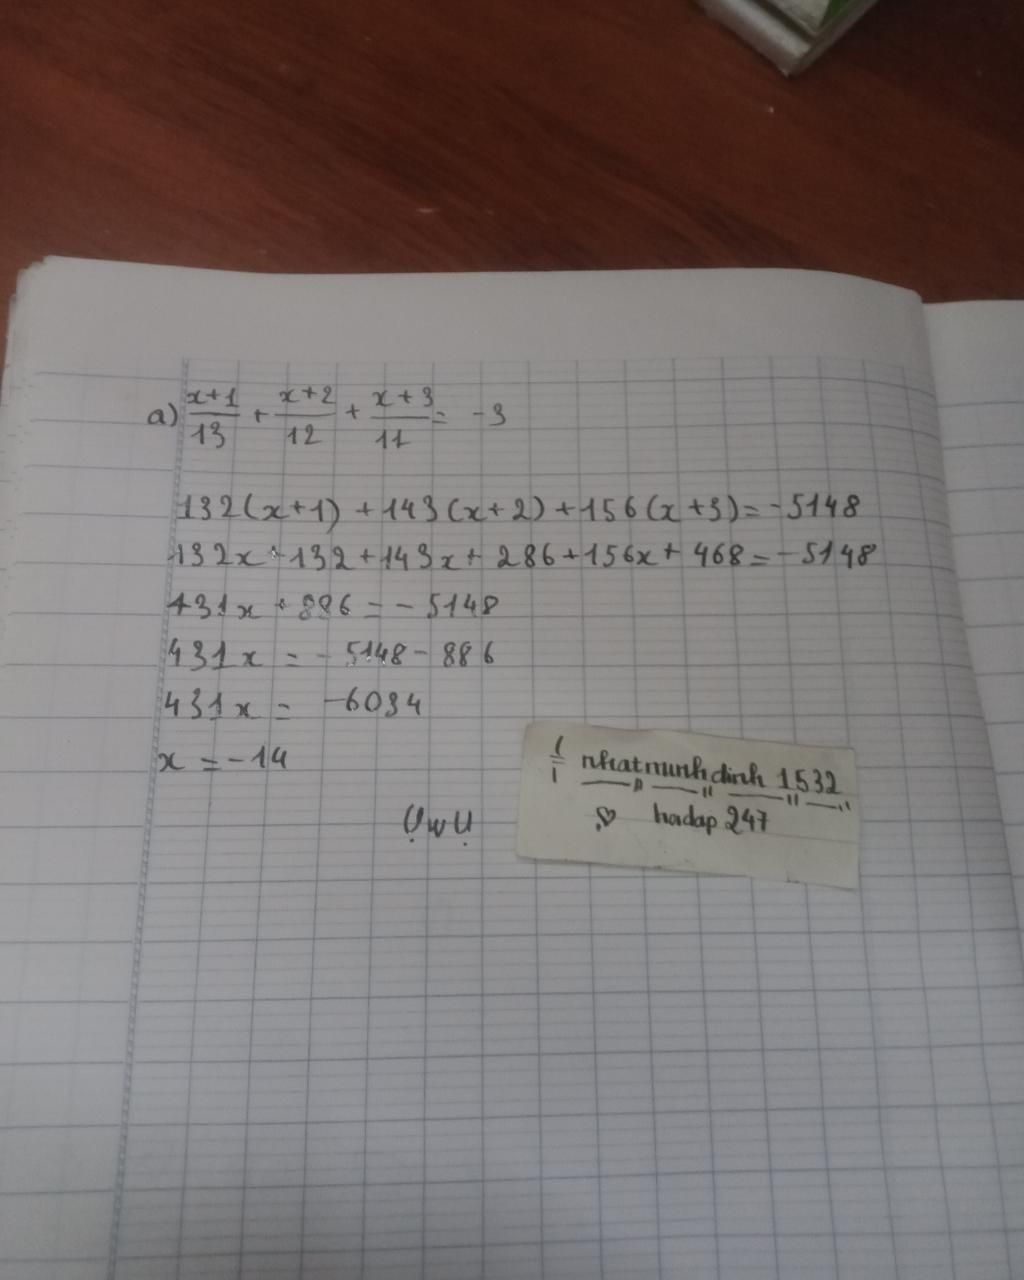 a) x+1/13 + x+2/12 + x+3/11 = -3
132(x+1) + 143(x+2) + 156(x+3) = -5148
132x + 132 + 143x + 286 + 156x + 468 = -5148
431x + 886 = -5148
431x = -5148 - 886
431x = -6034
x = -14
UwU
nhatminhdinh 1532
hadap 247